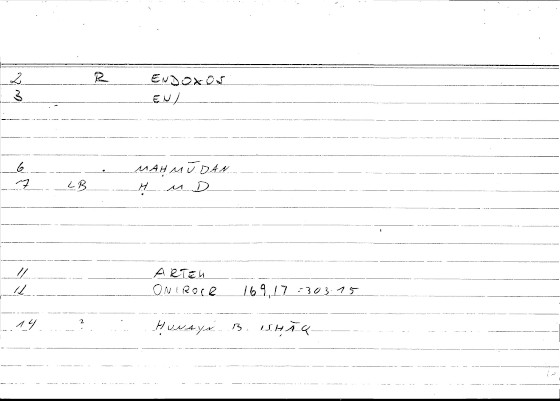 2 R ENDOXOS
3 EN/
6 MAḤMŪDAN
7 LB Ḥ M D
11 ARTEM
12 ONIROCR 169,17 = 303.15
14 ? ḤUNAYN B. ISḤĀQ